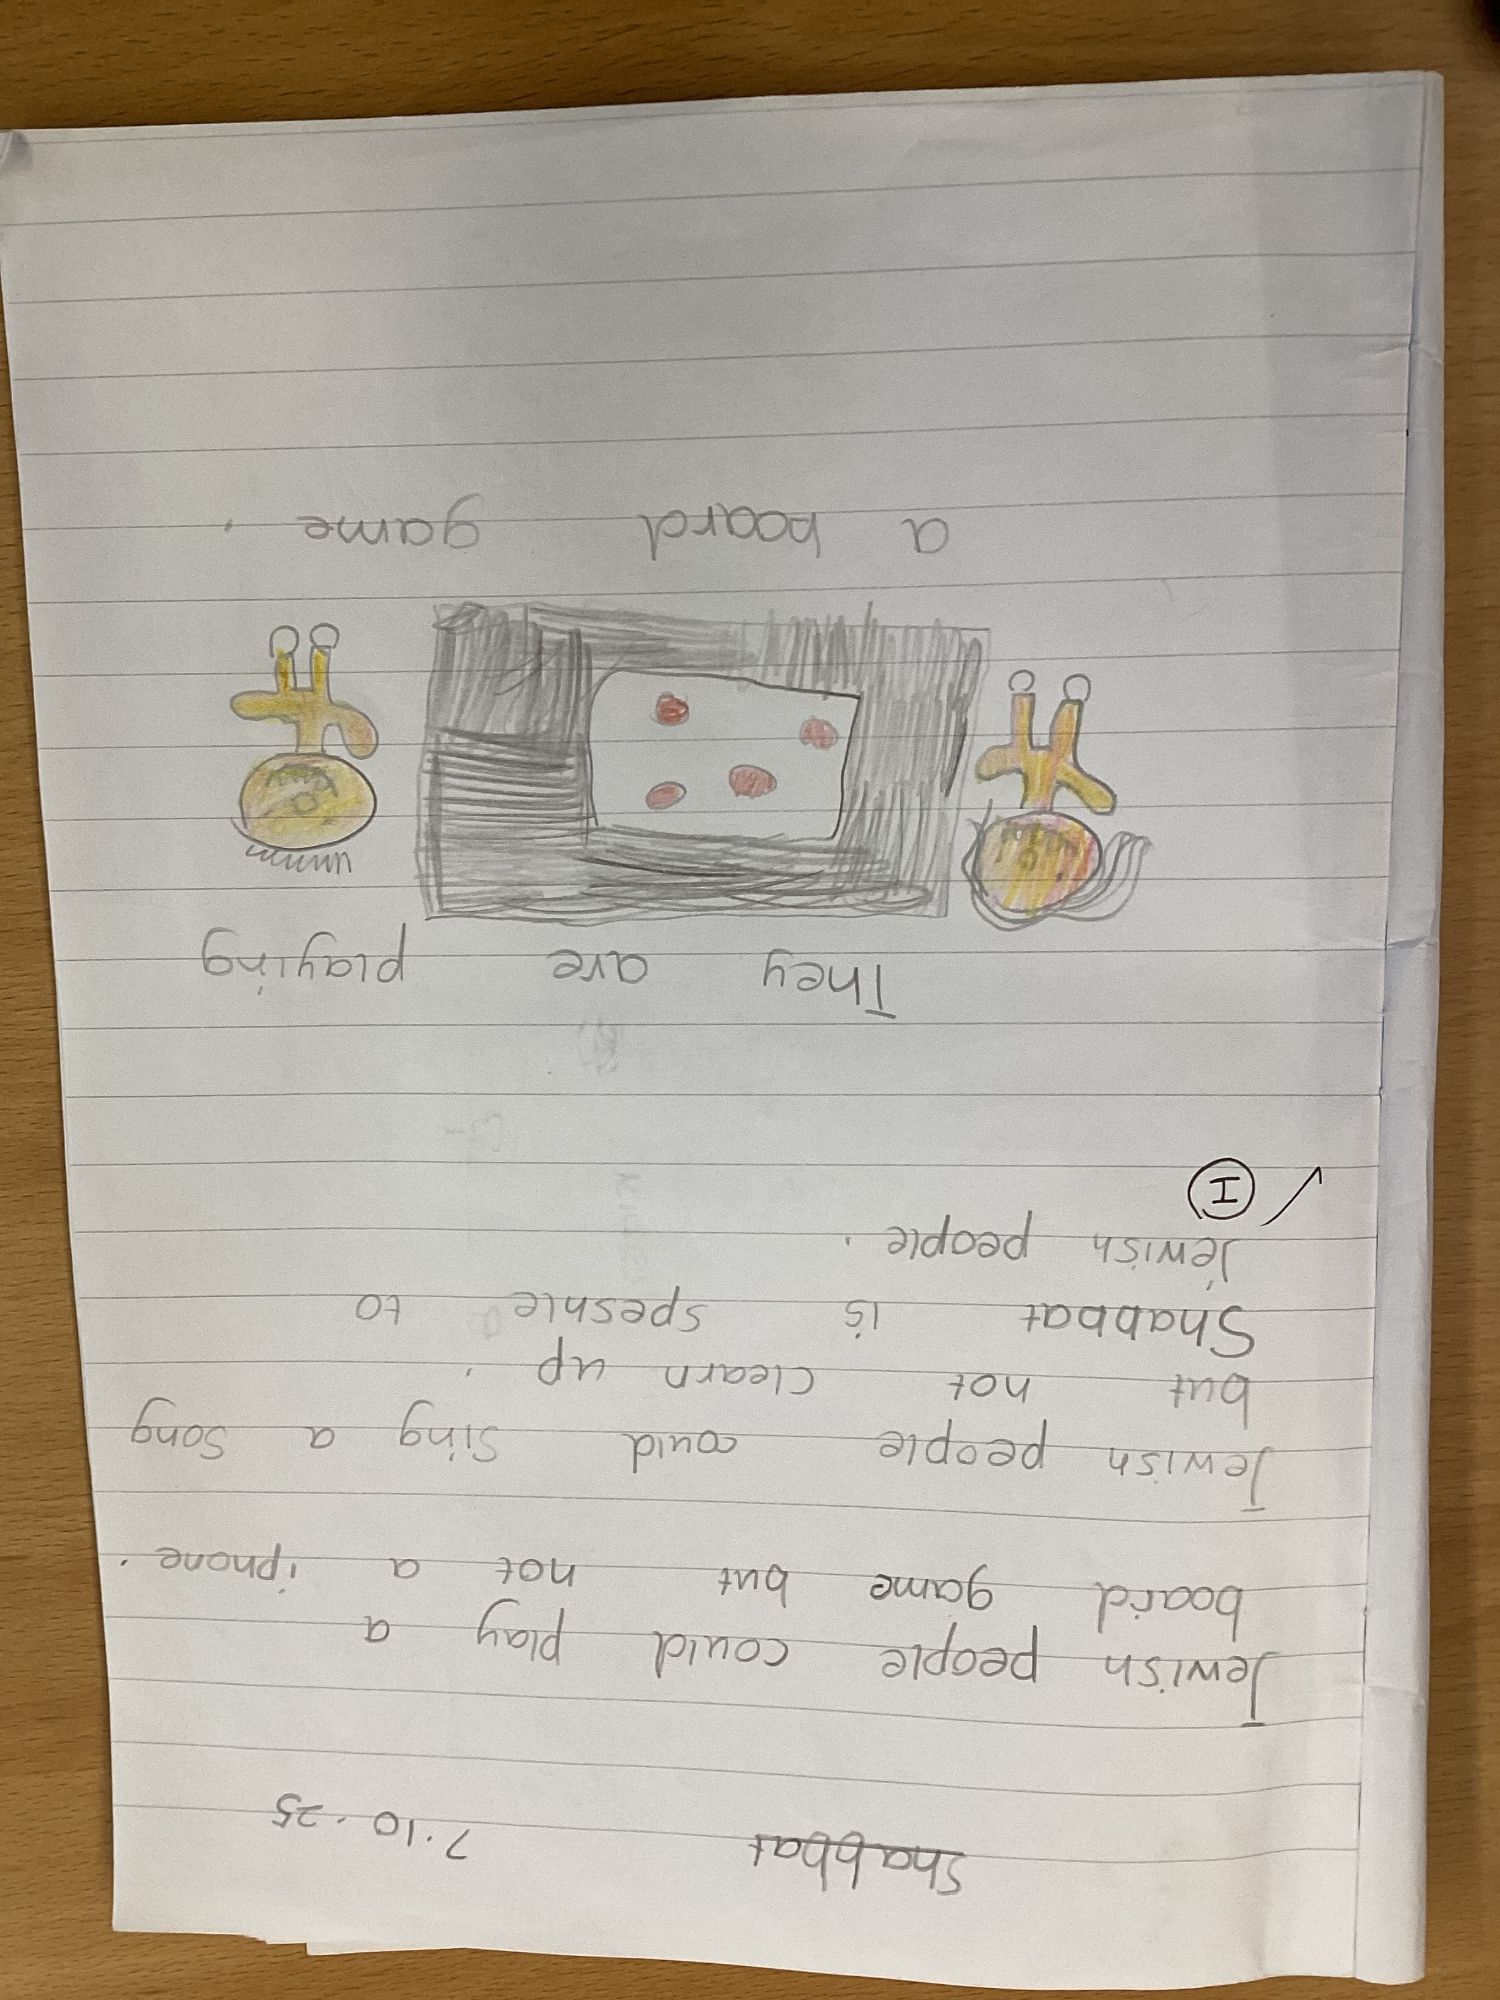 Shabbat 7.10.25
Jewish people could play a
board game but not a iphone.
Jewish people could sing a song
but not clearn up.
Shabbat is speshle to
Jewish people.
I
They are playing
a board game.